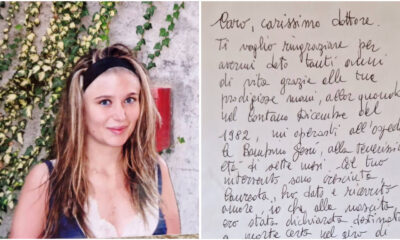 Caro, carissimo dottore,
Ti voglio ringraziare per
avermi dato tanti anni
di vita grazie alle tue
prodigiose mani, allor quando
nel lontano Dicembre del
1982, mi operasti all'osped
le Bambino Gesù, alla tenerissim
età di sette mesi. Col tuo
intervento, sono cresciuta
laureata, ho dato e ricevuto
amore, io che alla nascita
ero stata dichiarata destinata
a morte certa nel giro di